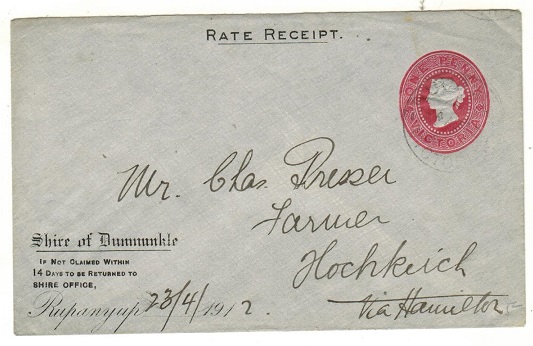 RATE RECEIPT.
ONE PENNY
VICTORIA
Mr. Chas. Presser
Farmer
Hochkirch
via Hamilton
Shire of Dunmunkle
IF NOT CLAIMED WITHIN
14 DAYS TO BE RETURNED TO
SHIRE OFFICE,
Rupanyup 23/4/1912.